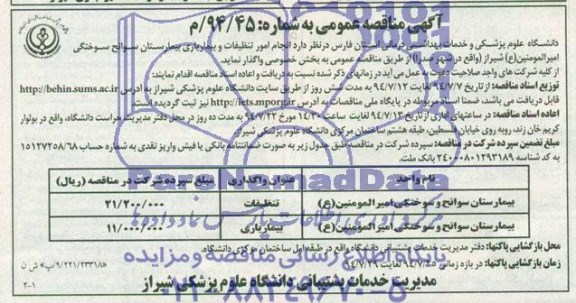 آگهی مناقصه عمومی به شماره: ۹۴/۴۵/م
دانشگاه علوم پزشکی و خدمات بهداشتی درمانی استان فارس در نظر دارد انجام امور تنظیفات و بیماربری بیمارستان سوانح سوختگی
امیرالمومنین(ع) شیراز (واقع در شهر صدرا) از طریق مناقصه عمومی به بخش خصوصی واگذار نماید.
از کلیه شرکت های واجد صلاحیت دعوت به عمل می آید در زمانهای ذکر شده نسبت به دریافت و اعاده اسناد مناقصه اقدام نمایند:
توزیع اسناد مناقصه: از تاریخ ۹۴/۷/۷ لغایت ۹۴/۷/۱۲ به مدت شش روز از طریق سایت دانشگاه علوم پزشکی شیراز به آدرس http://behin.sums.ac.ir
قابل دریافت می باشد، ضمنا اسناد مربوطه در پایگاه ملی مناقصات به آدرس http://iets.mporg.ir نیز ثبت گردیده است.
اعاده اسناد مناقصه: در ساعتهای اداری از تاریخ ۹۴/۷/۱۲ لغایت ساعت ۱۴:۳۰ مورخ ۹۴/۷/۲۲ به مدت ده روز در محل دفتر مدیریت حراست دانشگاه، واقع در بولوار
کریم خان زند، روبه روی خیابان فلسطین، طبقه هشتم ساختمان مرکزی دانشگاه علوم پزشکی شیراز
مبلغ تضمین سپرده شرکت در مناقصه: سپرده شرکت در مناقصه طبق جدول زیر به صورت ضمانتنامه بانکی یا فیش واریز نقدی به شماره حساب ۱۵۱۲۷۲۵۸/۶۸
به کد شناسه ۲۴۰۰۰۸۰۱۲۹۳۱۸۹ بانک ملت.
نام واحد عنوان واگذاری مبلغ سپرده شرکت در مناقصه (ریال)
بیمارستان سوانح و سوختگی امیرالمومنین(ع) تنظیفات ۲۱/۲۰۰/۰۰۰
بیمارستان سوانح و سوختگی امیرالمومنین(ع) بیماربری ۱۱/۰۰۰/۰۰۰
محل بازگشایی پاکتها: دفتر مدیریت خدمات پشتیبانی دانشگاه واقع در طبقه اول ساختمان مرکزی دانشگاه.
زمان بازگشایی پاکتها: در بازه زمانی ۹۴/۷/۲۵ لغایت ۹۴/۷/۲۹
مدیریت خدمات پشتیبانی دانشگاه علوم پزشکی شیراز
۲-۱
ParsNamadData
پایگاه اطلاع رسانی مناقصه و مزایده